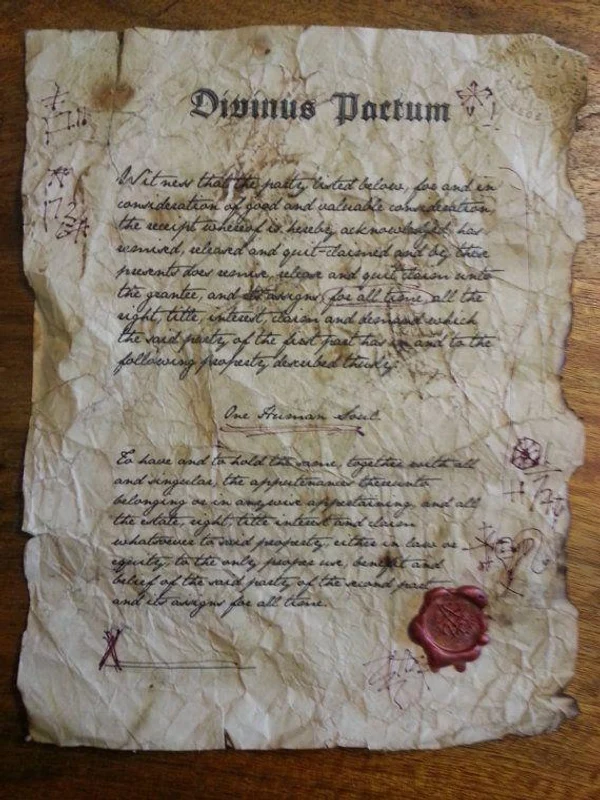 Divinus Pactum
Witness that the party listed below, for and in
consideration of good and valuable consideration,
the receipt whereof is hereby acknowledged, has
remised, released and quit-claimed and by these
presents does remise, release and quit claim unto
the grantee, and its assigns for all time, all the
right, title, interest, claim and demand which
the said party of the first part has in and to the
following property described thusly:
One Human Soul.
To have and to hold the same, together with all
and singular, the appurtenances thereunto
belonging or in anywise appertaining, and all
the estate, right, title interest and claim
whatsoever to said property, either in law or
equity, to the only proper use, benefit and
belief of the said party of the second part
and its assigns for all time.
X